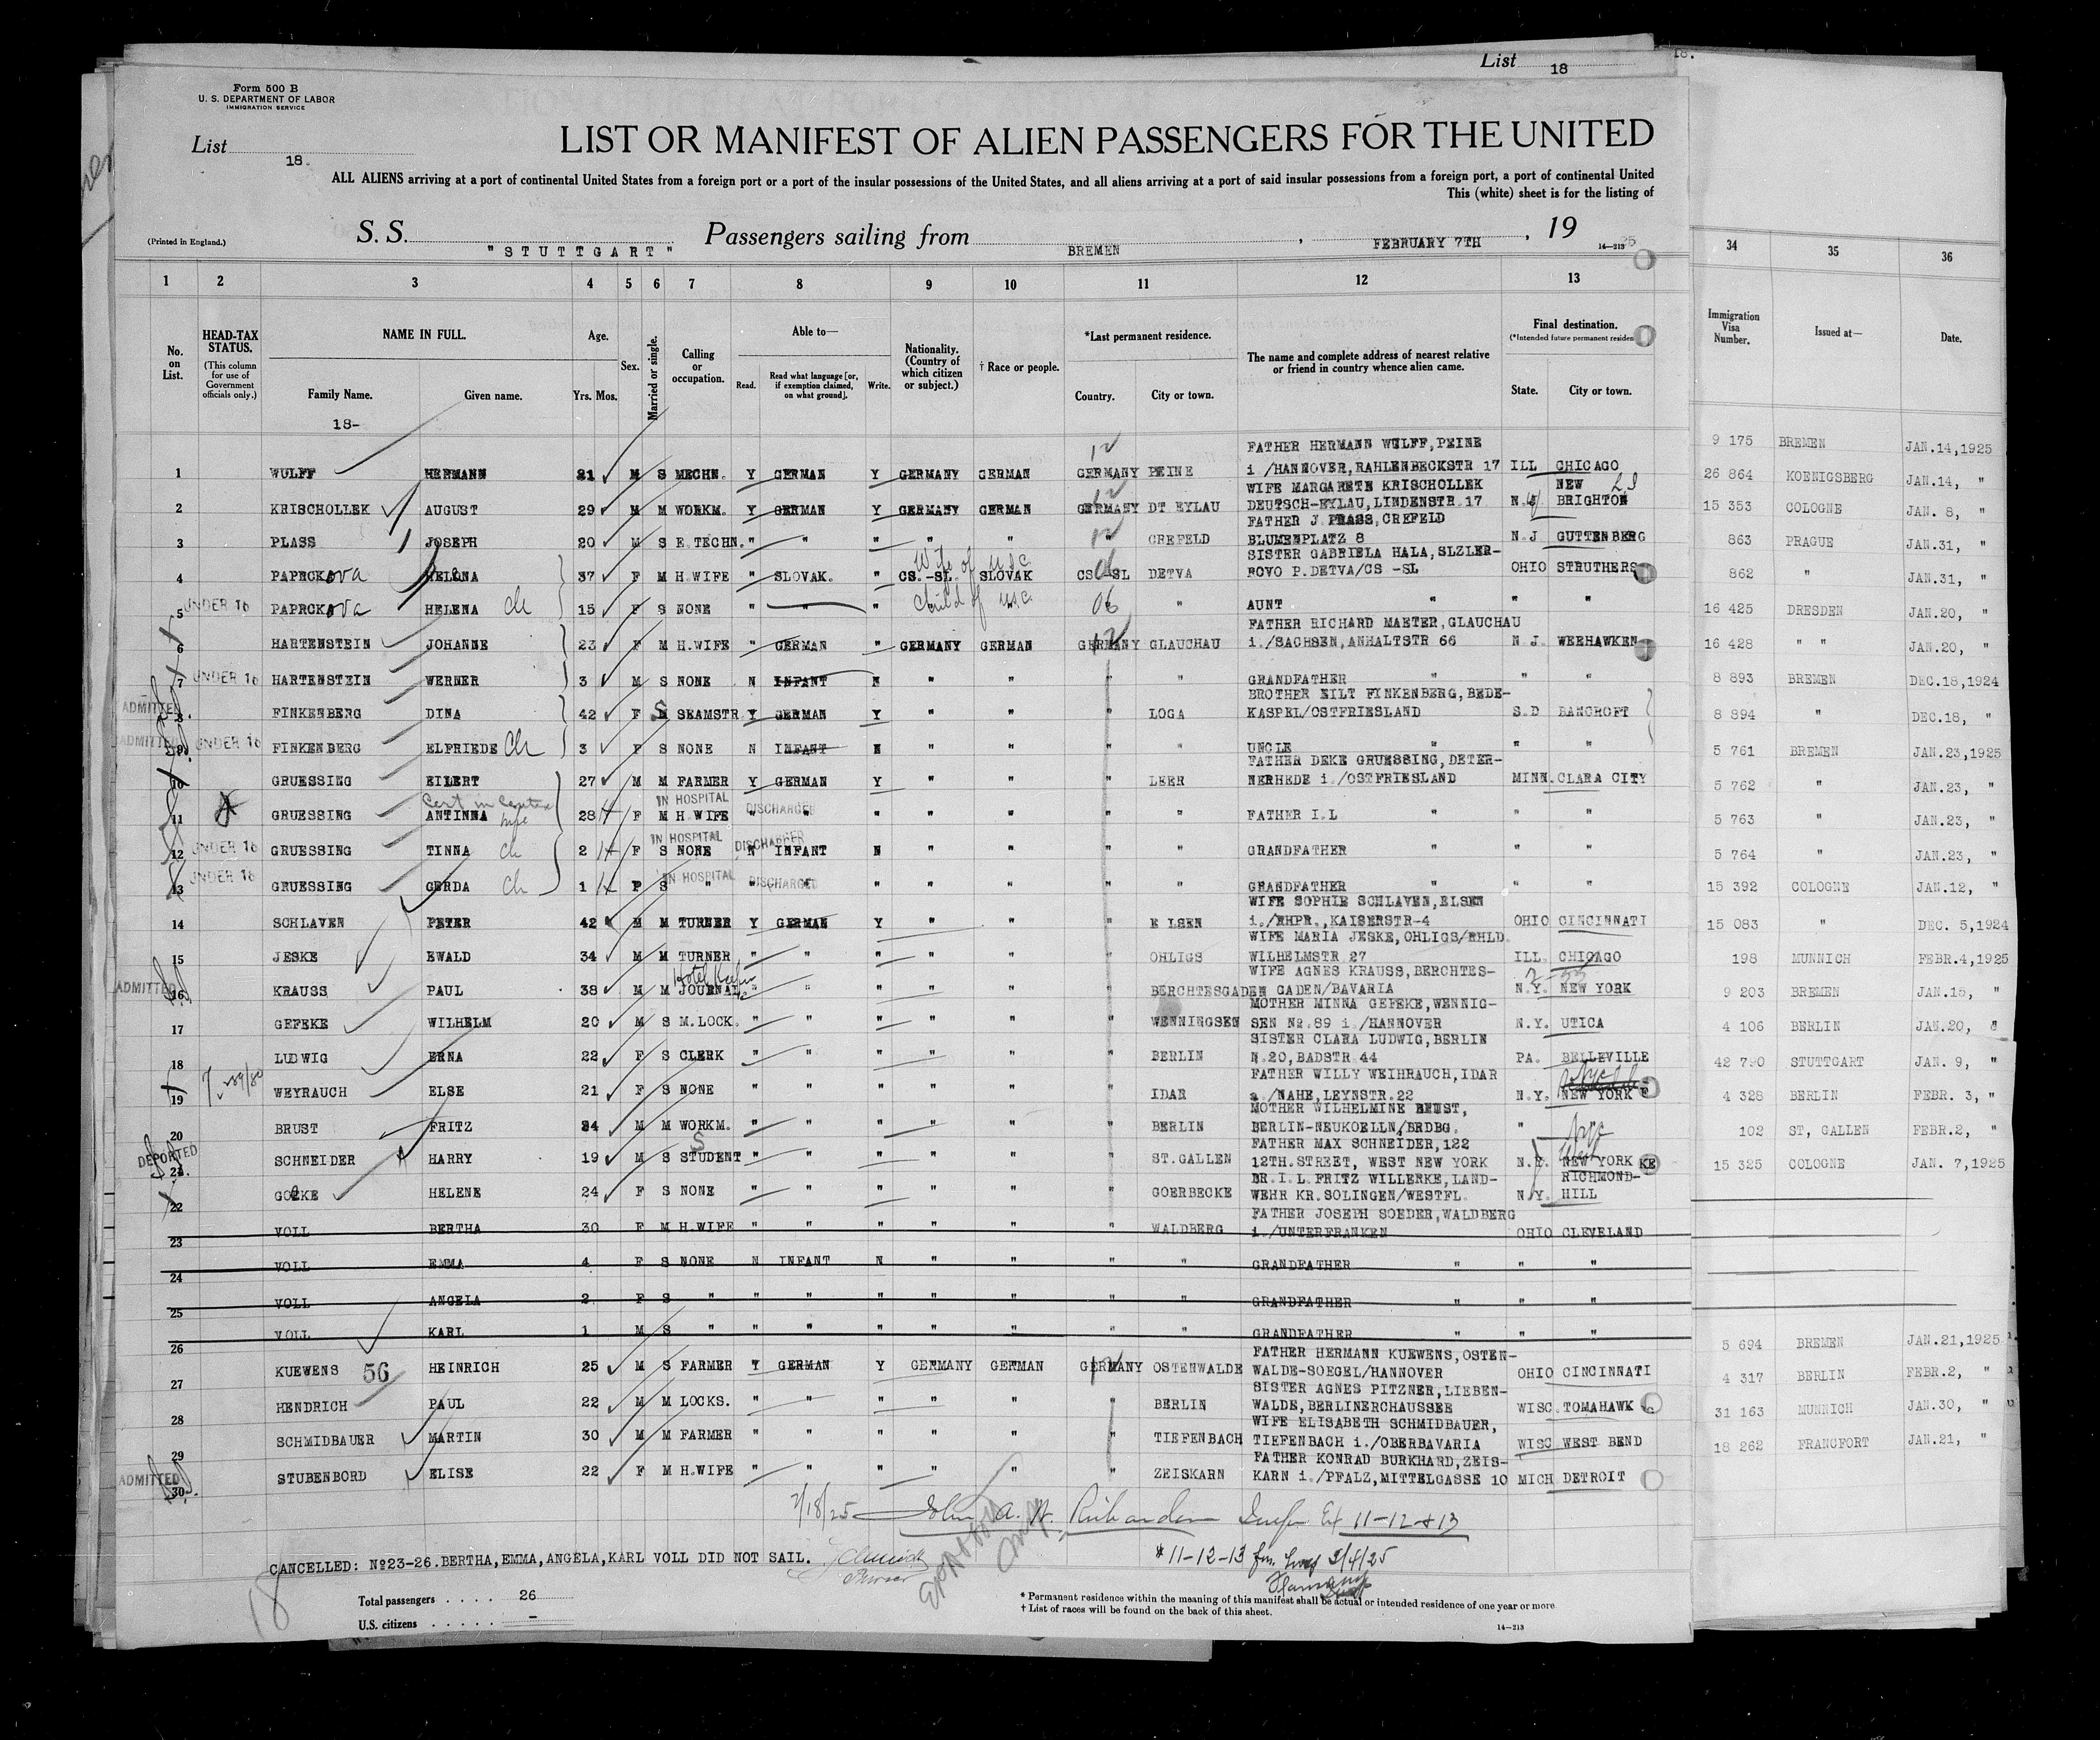 List 18
18.
Form 500 B
U. S. DEPARTMENT OF LABOR
IMMIGRATION SERVICE
List 18.
LIST OR MANIFEST OF ALIEN PASSENGERS FOR THE UNITED
ALL ALIENS arriving at a port of continental United States from a foreign port or a port of the insular possessions of the United States, and all aliens arriving at a port of said insular possessions from a foreign port, a port of continental United
This (white) sheet is for the listing of
(Printed in England.)
S. S. "STUTTGART" Passengers sailing from BREMEN, FEBRUARY 7TH, 19 25
14—213
1 2 3 4 5 6 7 8 9 10 11 12 13 34 35 36
No. on List.
HEAD-TAX STATUS.
(This column for use of Government officials only.)
NAME IN FULL.
Family Name. Given name.
Age.
Yrs. Mos.
Sex.
Married or single.
Calling or occupation.
Able to—
Read. Read what language [or, if exemption claimed, on what ground]. Write.
Nationality. (Country of which citizen or subject.)
† Race or people.
*Last permanent residence.
Country. City or town.
The name and complete address of nearest relative or friend in country whence alien came.
Final destination.
(*Intended future permanent residen
State. City or town.
Immigration Visa Number.
Issued at—
Date.
18-
12
FATHER HERMANN WULFF, PEINE
1 WULFF HERMANN 21 M S MECHN. Y GERMAN Y GERMANY GERMAN GERMANY PEINE i./HANNOVER, RAHLENBECKSTR 17 ILL CHICAGO 9 175 BREMEN JAN.14,1925
WIFE MARGARETE KRISCHOLLEK NEW
2 KRISCHOLLEK AUGUST 29 M M WORKM. Y GERMAN Y GERMANY GERMAN GERMANY DT EYLAU DEUTSCH-EYLAU, LINDENSTR.17 N. BRIGHTON 26 864 KOENIGSBERG JAN.14, "
FATHER J PRASS, CREFELD
3 PLASS JOSEPH 20 M S E.TECHN. " " " " " " CREFELD BLUMENPLATZ 8 N.J GUTTENBERG 15 353 COLOGNE JAN. 8, "
Wife of USC
SISTER GABRIELA HALA, SLZLER-
4 PAPRCKova HELENA 37 F M H.WIFE " SLOVAK. " CS.-SL. SLOVAK CS-SL 06 DETVA ROVO P.DETVA/CS -SL OHIO STRUTHERS 863 PRAGUE JAN.31, "
Child of USC
5 UNDER 16 PAPRCKova HELENA Ch 15 F S NONE " " " 06 " AUNT " " " 862 " JAN.31, "
FATHER RICHARD MAETER, GLAUCHAU
6 HARTENSTEIN JOHANNE 23 F M H.WIFE " GERMAN " GERMANY GERMAN GERMANY 12 GLAUCHAU i./SACHSEN, ANHALTSTR 66 N.J. WEEHAWKEN 16 425 DRESDEN JAN.20, "
7 UNDER 16 HARTENSTEIN WERNER 3 M S NONE N INFANT N " " " " GRANDFATHER " " " 16 428 " " JAN.20, "
BROTHER EILT FINKENBERG, BEDE-
ADMITTED 8 FINKENBERG DINA 42 F S SEAMSTR. Y GERMAN Y " " " LOGA KASPEL/OSTFRIESLAND S.D BANCROFT 8 893 BREMEN DEC.18,1924
ADMITTED 9 UNDER 16 FINKENBERG ELFRIEDE Ch 3 F S NONE N INFANT N " " " " UNCLE " " " 8 894 " DEC.18, "
FATHER DEKE GRUESSING, DETER-
10 GRUESSING EILERT 27 M M FARMER Y GERMAN Y " " " LEER NERHEDE i./OSTFRIESLAND MINN. CLARA CITY 5 761 BREMEN JAN.23,1925
IN HOSPITAL DISCHARGED
11 GRUESSING ANTINNA wife 28 F M H.WIFE " " " " " " " FATHER I.L " " " 5 762 " JAN.23, "
IN HOSPITAL DISCHARGED
12 UNDER 16 GRUESSING TINNA Ch 2 F S NONE N INFANT N " " " " GRANDFATHER " " " 5 763 " JAN.23, "
IN HOSPITAL DISCHARGED
13 UNDER 16 GRUESSING GERDA Ch 1 F S " " " " " " " " GRANDFATHER " " " 5 764 " JAN.23, "
WIFE SOPHIE SCHLAVEN, ELSEN
14 SCHLAVEN PETER 42 M M TURNER Y GERMAN Y " " " E LSEN i./RHPR., KAISERSTR-4 OHIO CINCINNATI 15 392 COLOGNE JAN.12, "
WIFE MARIA JESKE, OHLIGS/RHLD.
15 JESKE EWALD 34 M M TURNER " " " " " " OHLIGS WILHELMSTR 27 ILL. CHICAGO 15 083 " DEC. 5,1924
Hotel Keeper
WIFE AGNES KRAUSS, BERCHTES-
ADMITTED 16 KRAUSS PAUL 38 M M JOURNAL " " " " " " BERCHTESGADEN GADEN/BAVARIA N.Y. NEW YORK 198 MUNNICH FEBR.4,1925
MOTHER MINNA GEFEKE, WENNIG-
17 GEFEKE WILHELM 20 M S M.LOCK. " " " " " " WENNINGSEN SEN No.89 i./HANNOVER N.Y. UTICA 9 203 BREMEN JAN.15, "
SISTER CLARA LUDWIG, BERLIN
18 LUDWIG ERNA 22 F S CLERK " " " " " BERLIN N.20, BADSTR.44 PA. BELLEVILLE 4 106 BERLIN JAN.20, "
FATHER WILLY WEIHRAUCH, IDAR
19 WEYRAUCH ELSE 21 F S NONE " " " " " " IDAR a./NAHE, LEYNSTR.22 N.Y. NEW YORK 42 790 STUTTGART JAN. 9, "
MOTHER WILHELMINE BRUST,
20 BRUST FRITZ 24 M M WORKM. " " " " " " BERLIN BERLIN-NEUKOELLN/BRDBG. " 4 328 BERLIN FEBR. 3, "
FATHER MAX SCHNEIDER, 122
DEPORTED 21 SCHNEIDER HARRY 19 M S STUDENT " " " " " " ST.GALLEN 12TH.STREET, WEST NEW YORK N.Y. West NEW YORK 102 ST. GALLEN FEBR.2, "
BR.I.L.FRITZ WILLERKE, LAND- RICHMOND-
22 GOEKE HELENE 24 F S NONE " " " " " " GOERBECKE WEHR KR.SOLINGEN/WESTFL. N.Y. HILL 15 325 COLOGNE JAN. 7,1925
FATHER JOSEPH SOEDER, WALDBERG
23 VOLL BERTHA 30 F M H.WIFE " " " " " " WALDBERG i./UNTERFRANKEN OHIO CLEVELAND
24 VOLL EMMA 4 F S NONE N INFANT N " " " " GRANDFATHER " " "
25 VOLL ANGELA 2 F S " " " " " " " " GRANDFATHER " " "
26 VOLL KARL 1 M S " " " " " " " " GRANDFATHER " " "
FATHER HERMANN KUEWENS, OSTEN-
27 KUEWENS 56 HEINRICH 25 M S FARMER Y GERMAN Y GERMANY GERMAN GERMANY 12 OSTENWALDE WALDE-SOEGEL/HANNOVER OHIO CINCINNATI 5 694 BREMEN JAN.21,1925
SISTER AGNES PITZNER, LIEBEN-
28 HENDRICH PAUL 22 M M LOCKS. " " " " " BERLIN WALDE, BERLINERCHAUSSEE WISC. TOMAHAWK 4 317 BERLIN FEBR.2, "
WIFE ELISABETH SCHMIDBAUER,
29 SCHMIDBAUER MARTIN 30 M M FARMER " " " " " " TIEFENBACH TIEFENBACH i./OBERBAVARIA WISC WEST BEND 31 163 MUNNICH JAN.30, "
FATHER KONRAD BURKHARD, ZEIS-
ADMITTED 30 STUBENBORD ELISE 22 F M H.WIFE " " " " " " ZEISKARN KARN i./PFALZ, MITTELGASSE 10 MICH DETROIT 18 262 FRANCFORT JAN.21, "
2/18/25 John A. W. Richardson Insp Ex 11-12+13
CANCELLED: No23-26. BERTHA, EMMA, ANGELA, KARL VOLL DID NOT SAIL.
Purser
* 11-12-13
18
Total passengers 26
U.S. citizens –
* Permanent residence within the meaning of this manifest shall be actual or intended residence of one year or more
† List of races will be found on the back of this sheet.
14—213